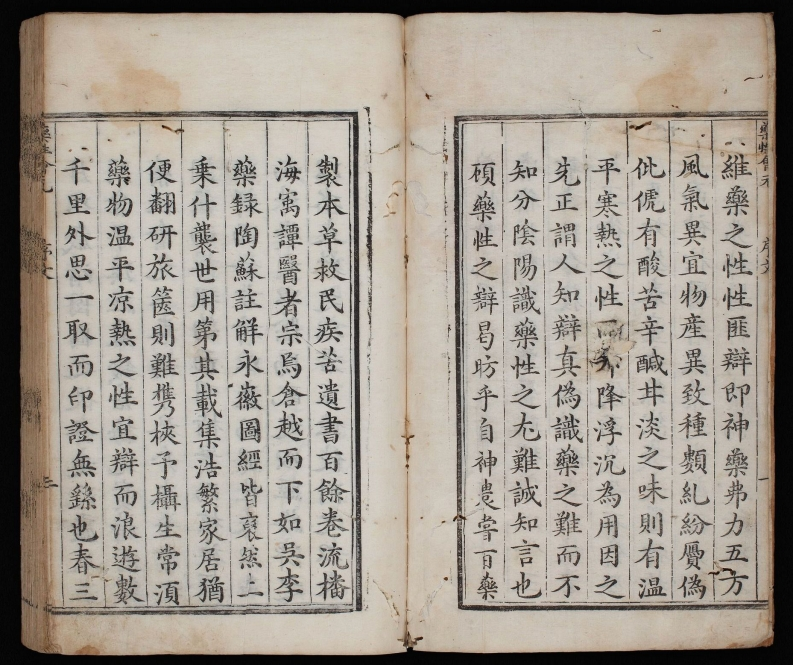 維藥之性性匪辯即神藥弗力五方
風氣異宜物産異致種類糺紛贗偽
佌傂有酸苦辛醎甘淡之味則有温
平寒熱之性降浮沉為用因之
先正謂人知辯真偽識藥之難而不
知分隂陽識藥性之尤難誠知言也
碩藥性之辯曷昉乎自神農嘗百藥
製本草救民疾苦遺書百餘卷流播
海寓譚醫者宗焉倉越而下如吳李
藥録陶蘇註解永徽圖經皆裒然上
乗什襲世用第其載集浩繁家居猶
便翻研旅篋則難携挾予攝生常湏
藥物温平凉熱之性宜辯而浪遊數
千里外思一取而印證無繇也春三